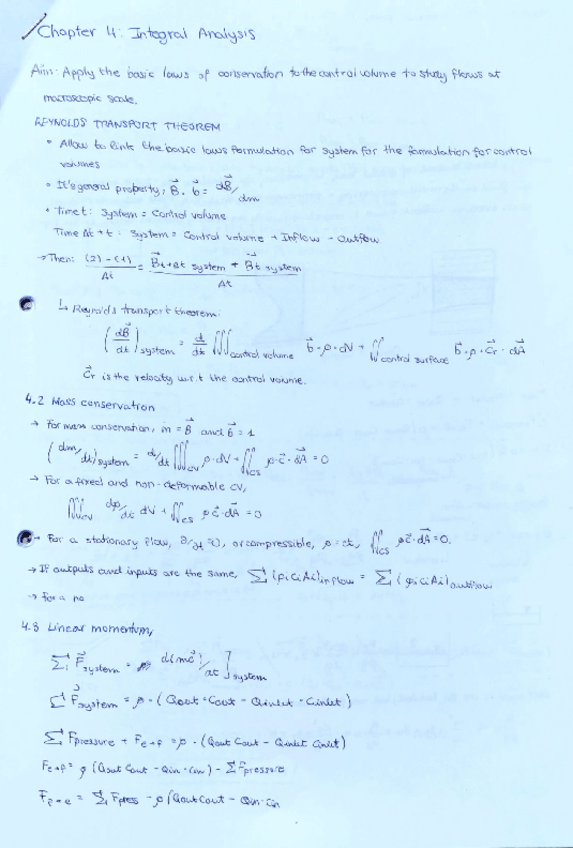 Chapter 4: Integral Analysis
Aim: Apply the basic laws of conservation to the control volume to study flows at
macroscopic scale.
REYNOLDS TRANSPORT THEOREM
• Allow to link the basic laws formulation for system for the formulation for control
volumes
• It's general property, B⃗. b⃗ = dB⃗/dm
• Time t: System = Control volume
Time Δt + t: System = Control volume + Inflow - Outflow
→ Then: (2) - (1) / Δt = B⃗t+Δt system + B⃗t system / Δt
↳ Reynolds transport theorem:
(dB⃗/dt)system = d/dt ∭control volume b⃗·ρ·dV + ∬control surface b⃗·ρ·c⃗r·dA⃗
c⃗r is the velocity w.r.t the control volume.
4.2 Mass conservation
→ For mass conservation, m = B⃗ and b⃗ = 1
(dm/dt)system = d/dt ∭CV ρ·dV + ∬CS ρ·c⃗·dA⃗ = 0
→ For a fixed and non-deformable CV,
∭CV dρ/dt dV + ∬CS ρc⃗·dA⃗ = 0
→ For a stationary flow, ∂/∂t = 0, or compressible, ρ = ct, ∬CS ρc⃗·dA⃗ = 0.
→ If outputs and inputs are the same, Σ(ρiciAi)inflow = Σ(ρiciAi)outflow
→ For a no
4.3 Linear momentum,
Σ F⃗system = d(mc⃗)/dt]system
Σ F⃗system = ρ·(Qout·Cout - Qinlet·Cinlet)
Σ Fpressure + Fe→f = ρ·(Qout Cout - Qinlet Cinlet)
Fe→f = ρ(Qout Cout - Qin·Cin) - ΣFpressure
Ff→e = Σ Fpres - ρ(Qout Cout - Qin·Cin